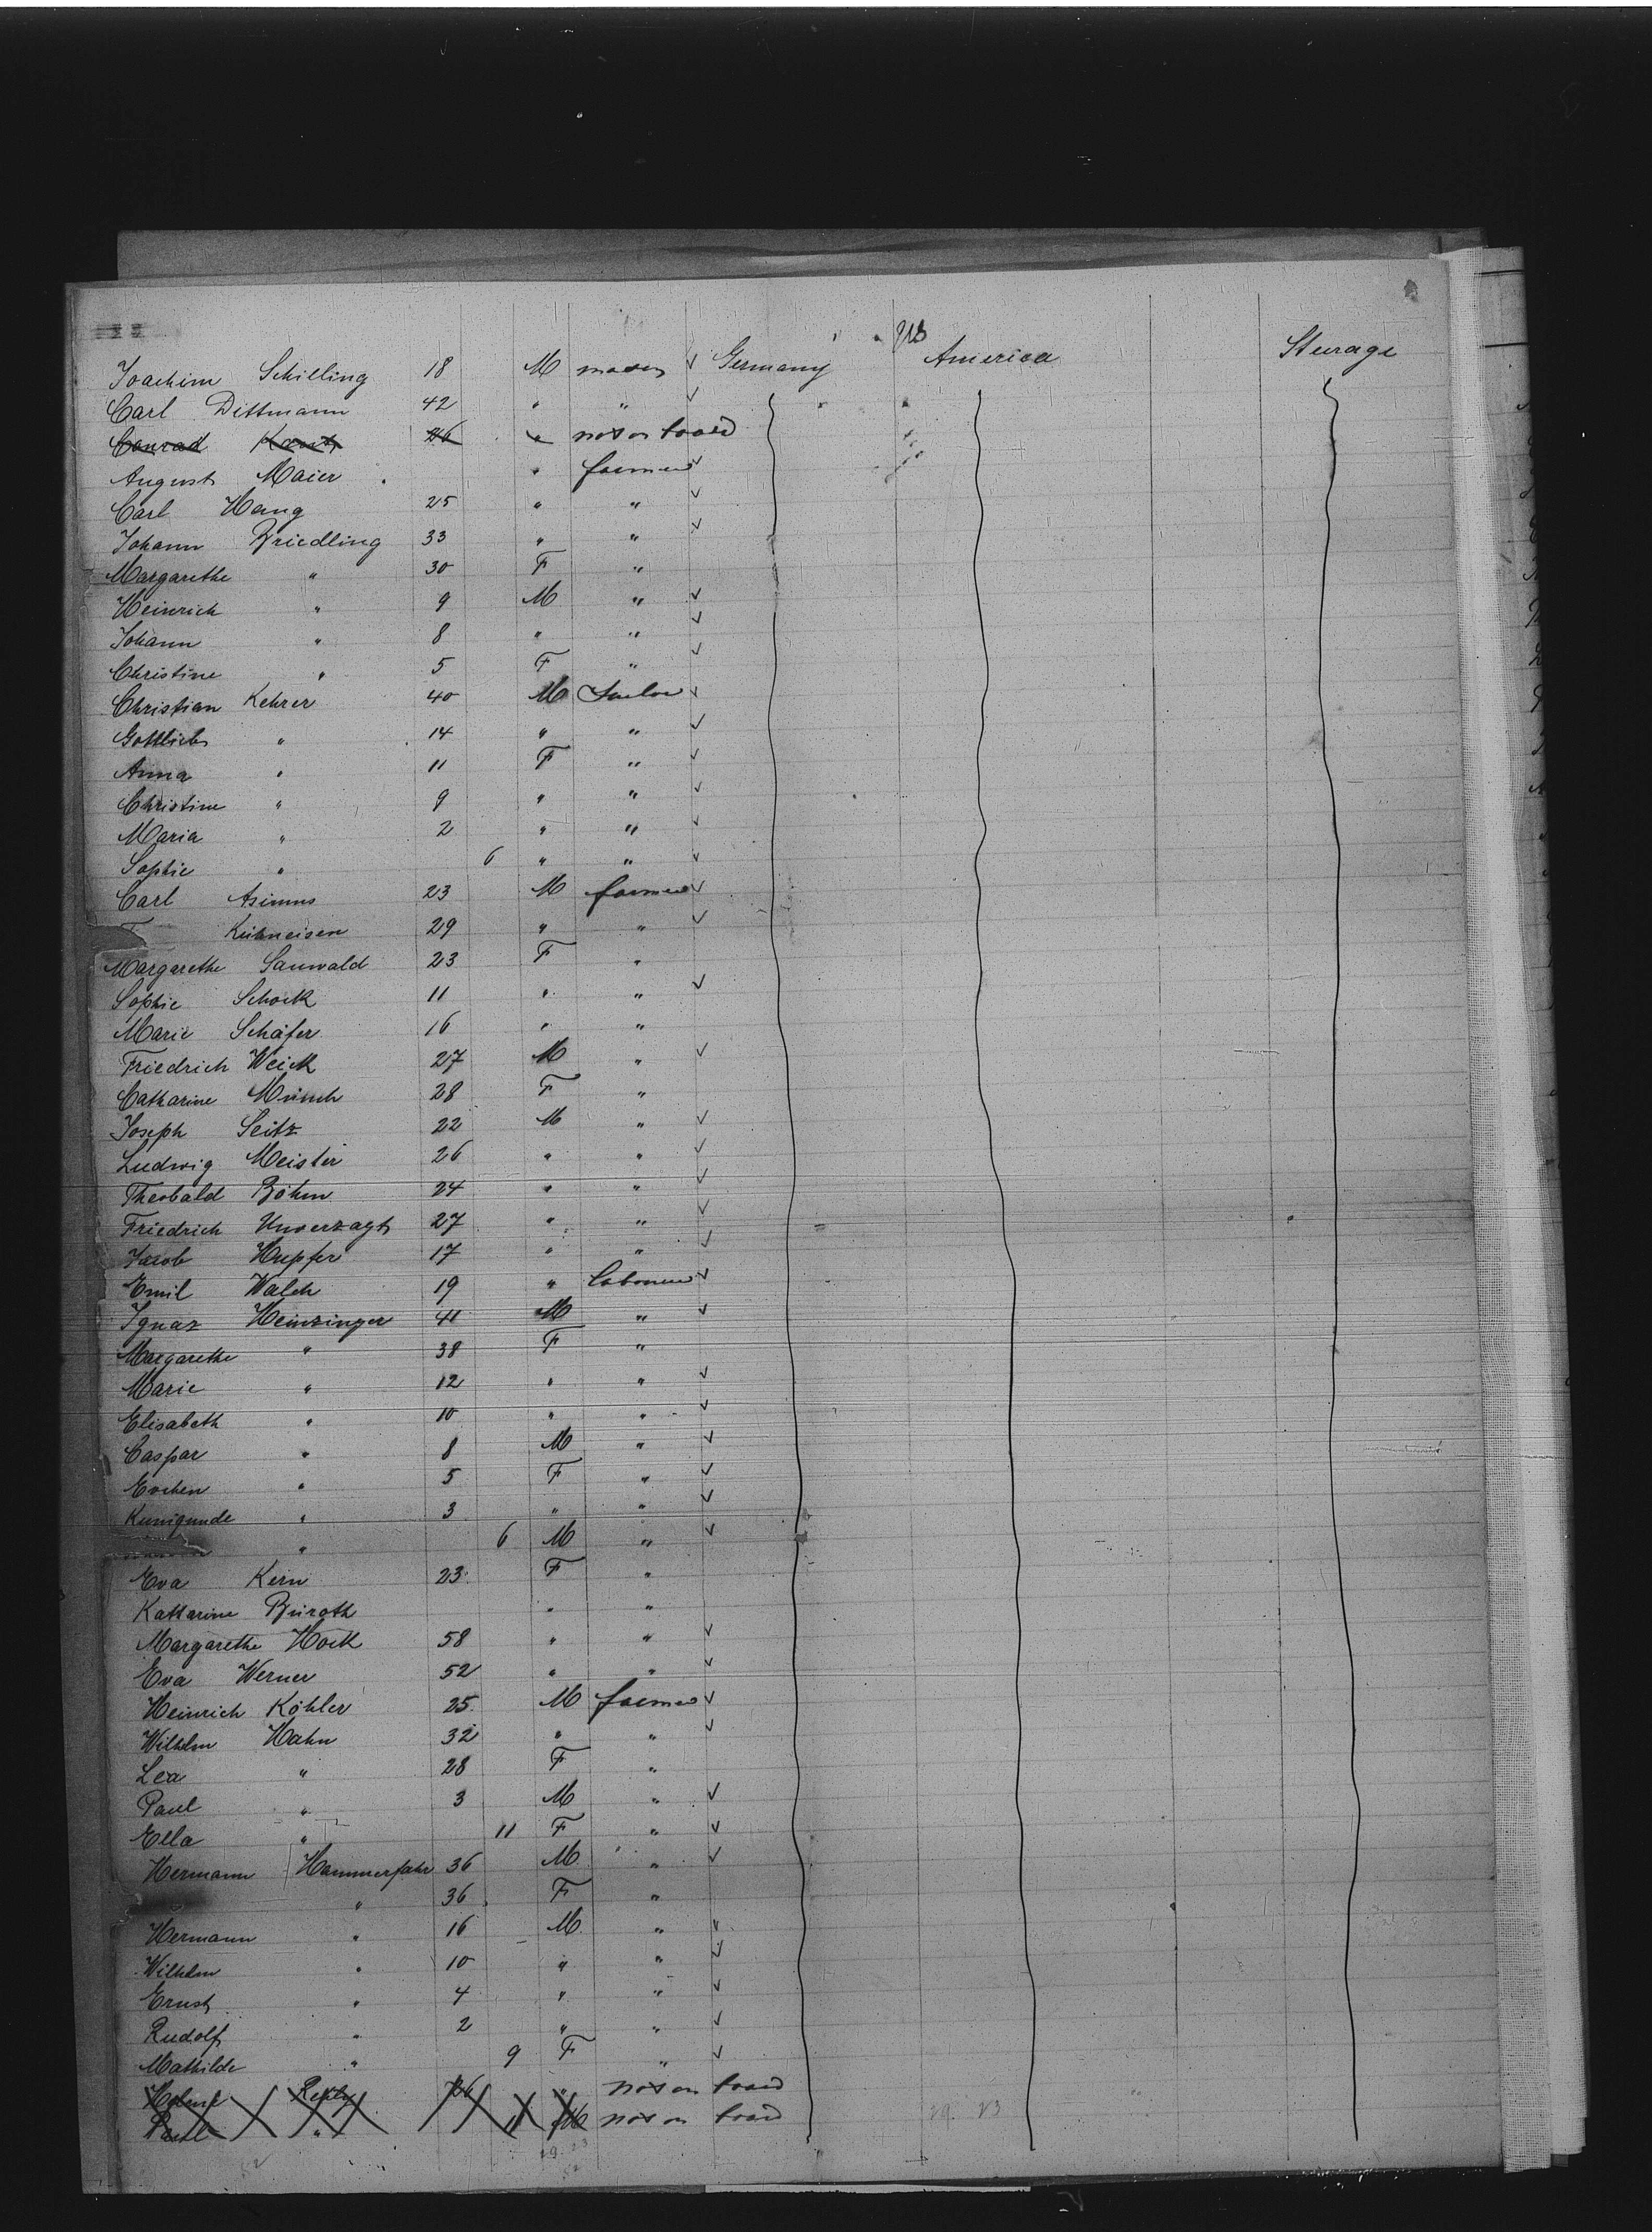 Joachim Schilling 18 M mason √ Germany US America Steerage
Carl Dittmann 42 " " √
Conrad 26 " not on board
August Maier " farmer √
Carl Haug 25 " " √
Johann Briedling 33 " " √
Margarethe " 30 F "
Heinrich " 9 M " √
Johann " 8 " " √
Christine " 5 F " √
Christian Kehrer 40 M √
Gottlieb " 14 " " √
Anna " 11 F " √
Christine " 9 " " √
Maria " 2 " " √
Sophie " 6 " " √
Carl Asimus 23 M farmer √
Kühneisen 29 " " √
Margarethe Sauwald 23 F "
Sophie Schock 11 " " √
Marie Schäfer 16 " "
Friedrich Weick 27 M " √
Catharine Münch 28 F "
Joseph Seitz 22 M " √
Ludwig Meister 26 " " √
Theobald Böhm 24 " " √
Friedrich Unverzagt 27 " " √
Jacob Hupfer 17 " " √
Emil Walch 19 " labourer √
Ignaz Heinzinger 41 M " √
Margarethe " 38 F "
Marie " 12 " " √
Elisabeth " 10 " " √
Caspar " 8 M " √
Evchen " 5 F " √
Kunigunde " 3 " " √
" 6 M " √
Eva Kern 23 F "
Katharine Büroth " "
Margarethe Hock 58 " " √
Eva Werner 52 " " √
Heinrich Köhler 25 M farmer √
Wilhelm Hahn 32 " " √
Lea " 28 F "
Paul " 3 M " √
Ella " 11 F " √
Hermann Hammerfahr 36 M " √
" 36 F "
Hermann " 16 M " √
Wilhelm " 10 " " √
Ernst " 4 " " √
Rudolf " 2 " " √
Mathilde " 9 F " √
Helene 26 " not on board
Paul " 11 M not on board
29 23
52 29 23
52